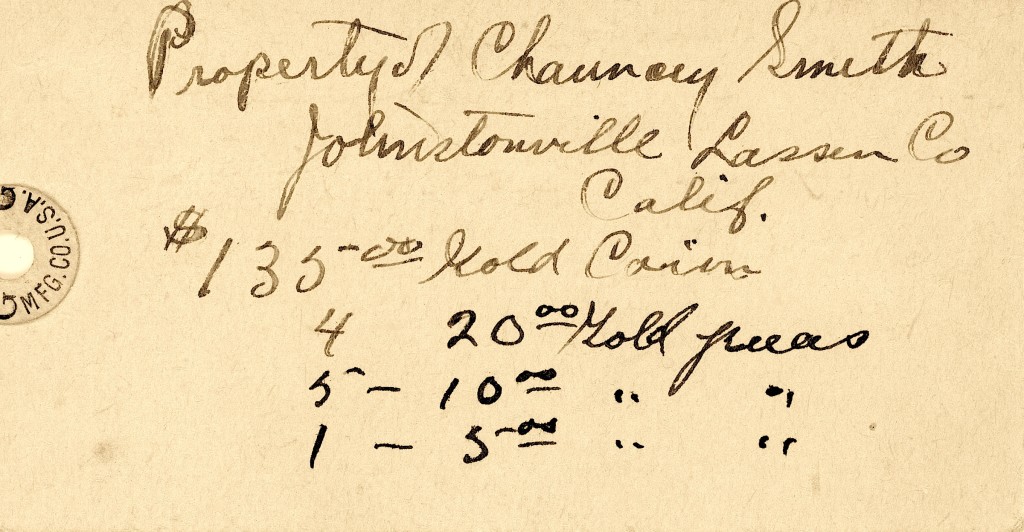 Property of Chauncey Smith
Johnstonville Lassen Co
Calif.
$135.00 Gold Coin
4 20.00 Gold pieces
5 - 10.00 " "
1 - 5.00 " "
MFG. CO. U.S.A.